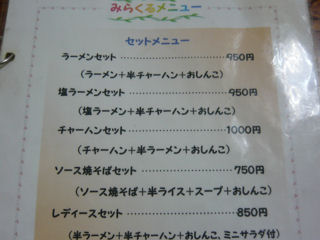 みらくるメニュー
セットメニュー
ラーメンセット ……………………950円
(ラーメン+半チャーハン+おしんこ)
塩ラーメンセット ……………………950円
(塩ラーメン+半チャーハン+おしんこ)
チャーハンセット ……………………1000円
(チャーハン+半ラーメン+おしんこ)
ソース焼そばセット ……………………750円
(ソース焼そば+半ライス+スープ+おしんこ)
レディースセット ……………………850円
(半ラーメン+半チャーハン+おしんこ、ミニサラダ付)